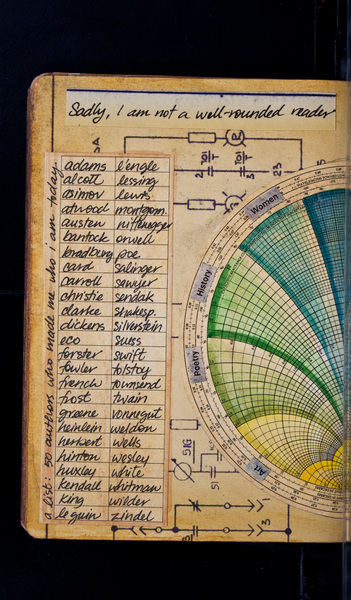 Sadly, I am not a well-rounded reader
a list: 50 authors who made me who i am today
adams l'engle
alcott lessing
asimov lewis
atwood montgom.
austen niffenegger
bantock orwell
bradbury poe
card salinger
carroll sawyer
christie sendak
clarke shakesp.
dickens silverstein
eco suss
forster swift
fowler tolstoy
french townsend
frost twain
greene vonnegut
heinlein weldon
herbert wells
hinton wesley
huxley white
kendall whitman
king wilder
leguin zindel
Women
History
Poetry
Art
23
51G
51
3